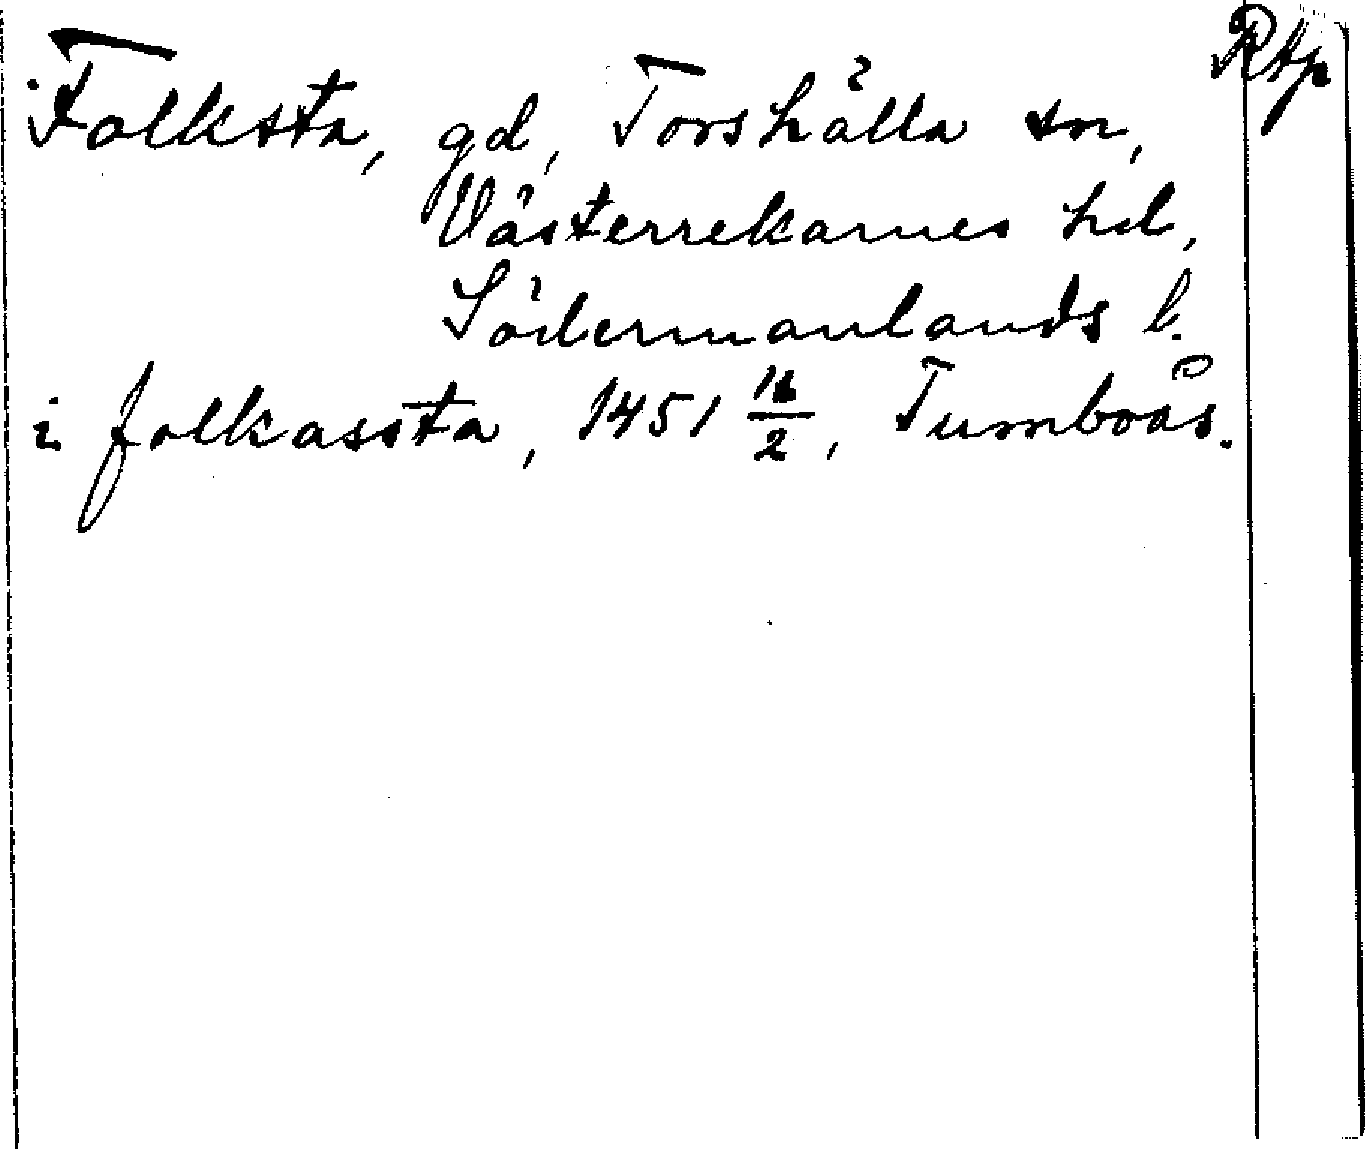 Rtp
Folksta, gd, Torshälla sn,
Västerrekarnes hd,
Södermanlands l.
i folkassta, 1451 16/2, Tumboås.